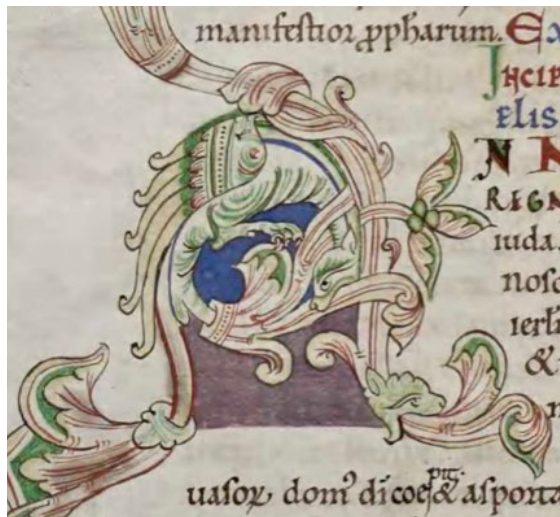 manifestior ꝓpharum. Ex
INCIP
ELIS
A N N
REGN
iuda.
nosc
ierl
&
uasoꝝ dom᷒ di coep̄it & asporta